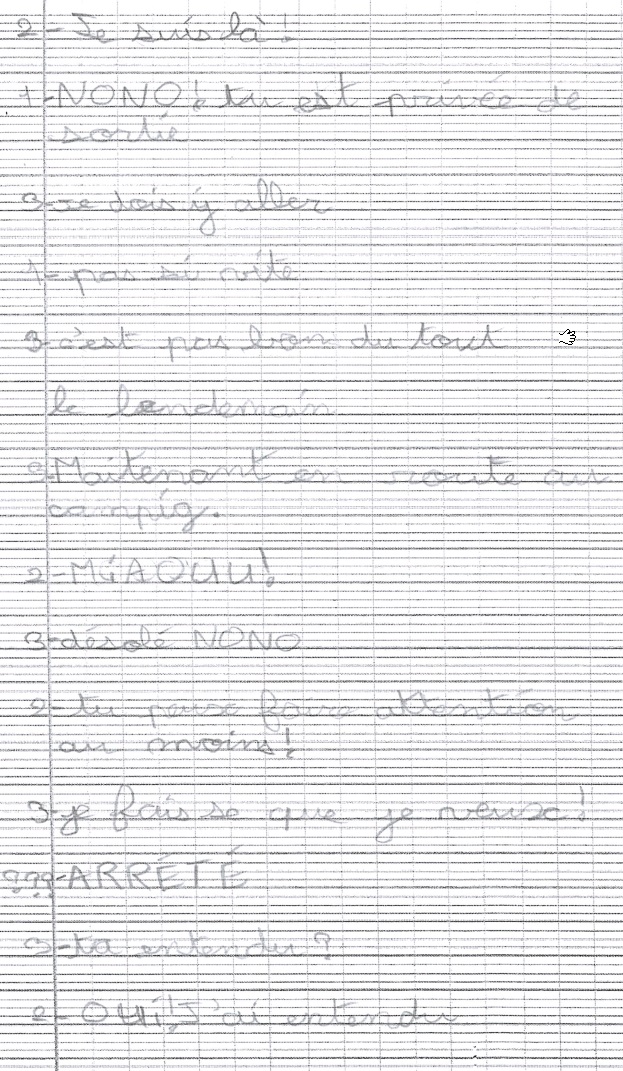 2-Je suis là !
1-NONO! tu est privée de
sortie
3-je dois y aller
1-pas si vite
3-c'est pas bon du tout
le lendemain
3-Maitenant en route au
campig.
2-MiAOUU!
3-désolé NONO
2-tu peux faire attention
au moins!
3-je fais se que je veux!
???-ARRÉTÉ
3-ta entendu ?
2-OUi! J'ai entendu